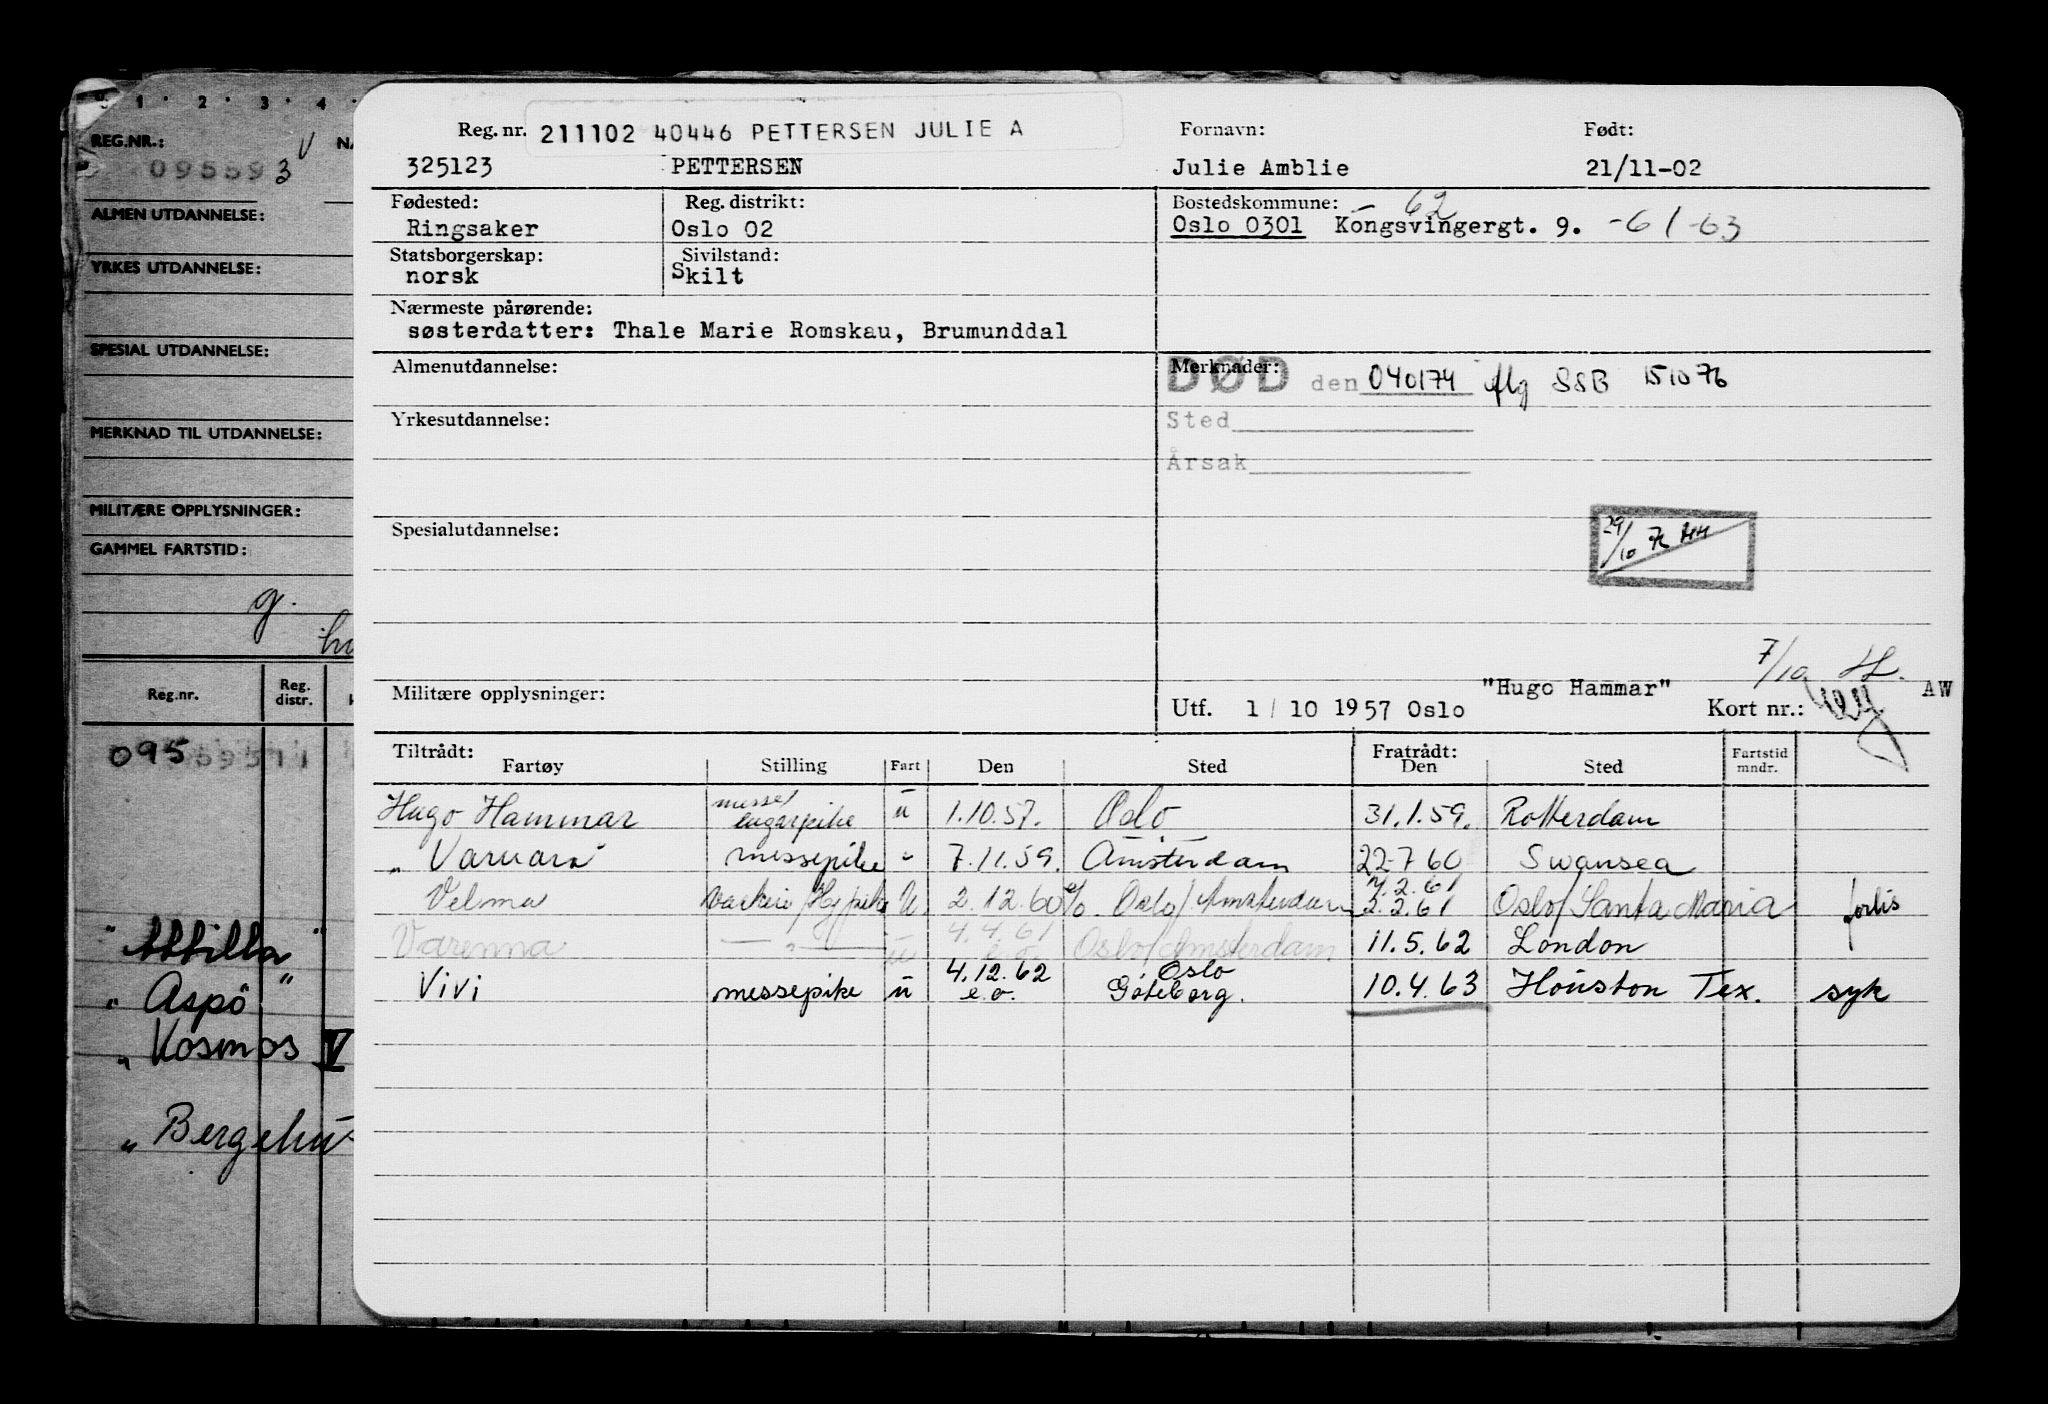 0 1 2 3 4
REG.NR.:
V
095593
ALMEN UTDANNELSE:
YRKES UTDANNELSE:
SPESIAL UTDANNELSE:
MERKNAD TIL UTDANNELSE:
MILITÆRE OPPLYSNINGER:
GAMMEL FARTSTID:
g.
Reg.nr. Reg. distr.
095
"Attilla"
"Aspö"
"Kosmos V
Reg. nr. 211102 40446 PETTERSEN JULIE A Fornavn: Født:
325123 PETTERSEN Julie Amblie 21/11-02
Fødested: Reg. distrikt: Bostedskommune: 62
Ringsaker Oslo 02 Oslo 0301 Kongsvingergt. 9. -61-63
Statsborgerskap: Sivilstand:
norsk Skilt
Nærmeste pårørende:
søsterdatter: Thale Marie Romskau, Brumunddal
Almenutdannelse: Merknader:
DØD den 040174 iflg SSB 151076
Yrkesutdannelse: Sted
Årsak
Spesialutdannelse:
29/10 76 HH
7/10 H.
Militære opplysninger: "Hugo Hammar" AW
Utf. 1/10 1957 Oslo Kort nr.:
Tiltrådt: Fratrådt:
Fartøy Stilling Fart Den Sted Den Sted Fartstid mndr.
Hugo Hammar messe/lugarpike u 1.10.57. Oslo 31.1.59. Rotterdam
" Varvara messepike " 7.11.59. Amsterdam 22-7 60 Swansea
Velma U 2.12.60 e/o. Oslo/Amsterdam 7.2.61 2.2.61 Oslo/Santa Maria forlis
Varenna — " — u 4.4.61 e.o. Oslo/Amsterdam 11.5.62 London
Vivi messepike u 4.12.62 e.o. Oslo Göteborg. 10.4.63 Houston Tex. syk